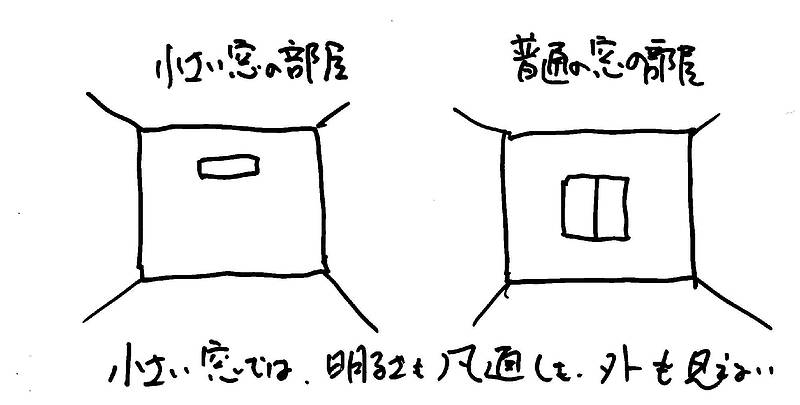 小さい窓の部屋
普通の窓の部屋
小さい窓では、明るさも風通しも、外も見えない